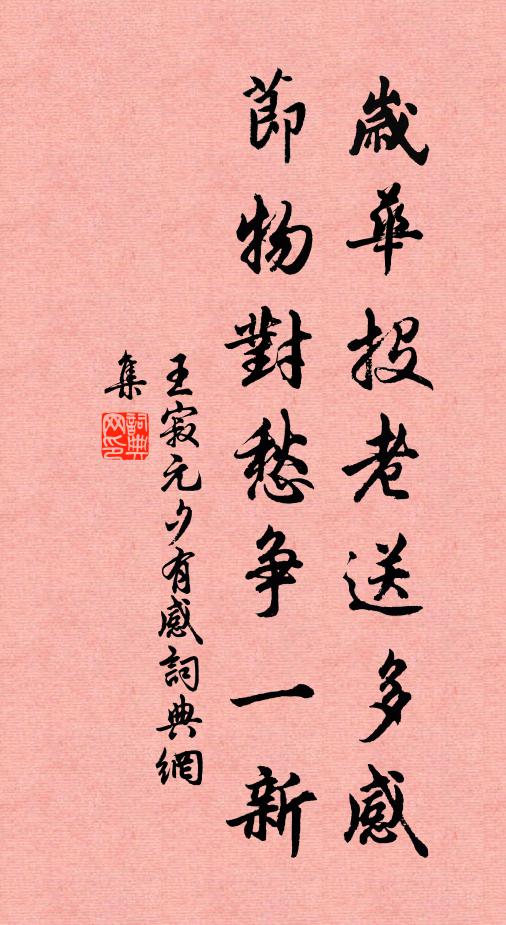 歲華投老送多感
節物對愁爭一新
王寂元夕有感詞典網
集
詞典
网印